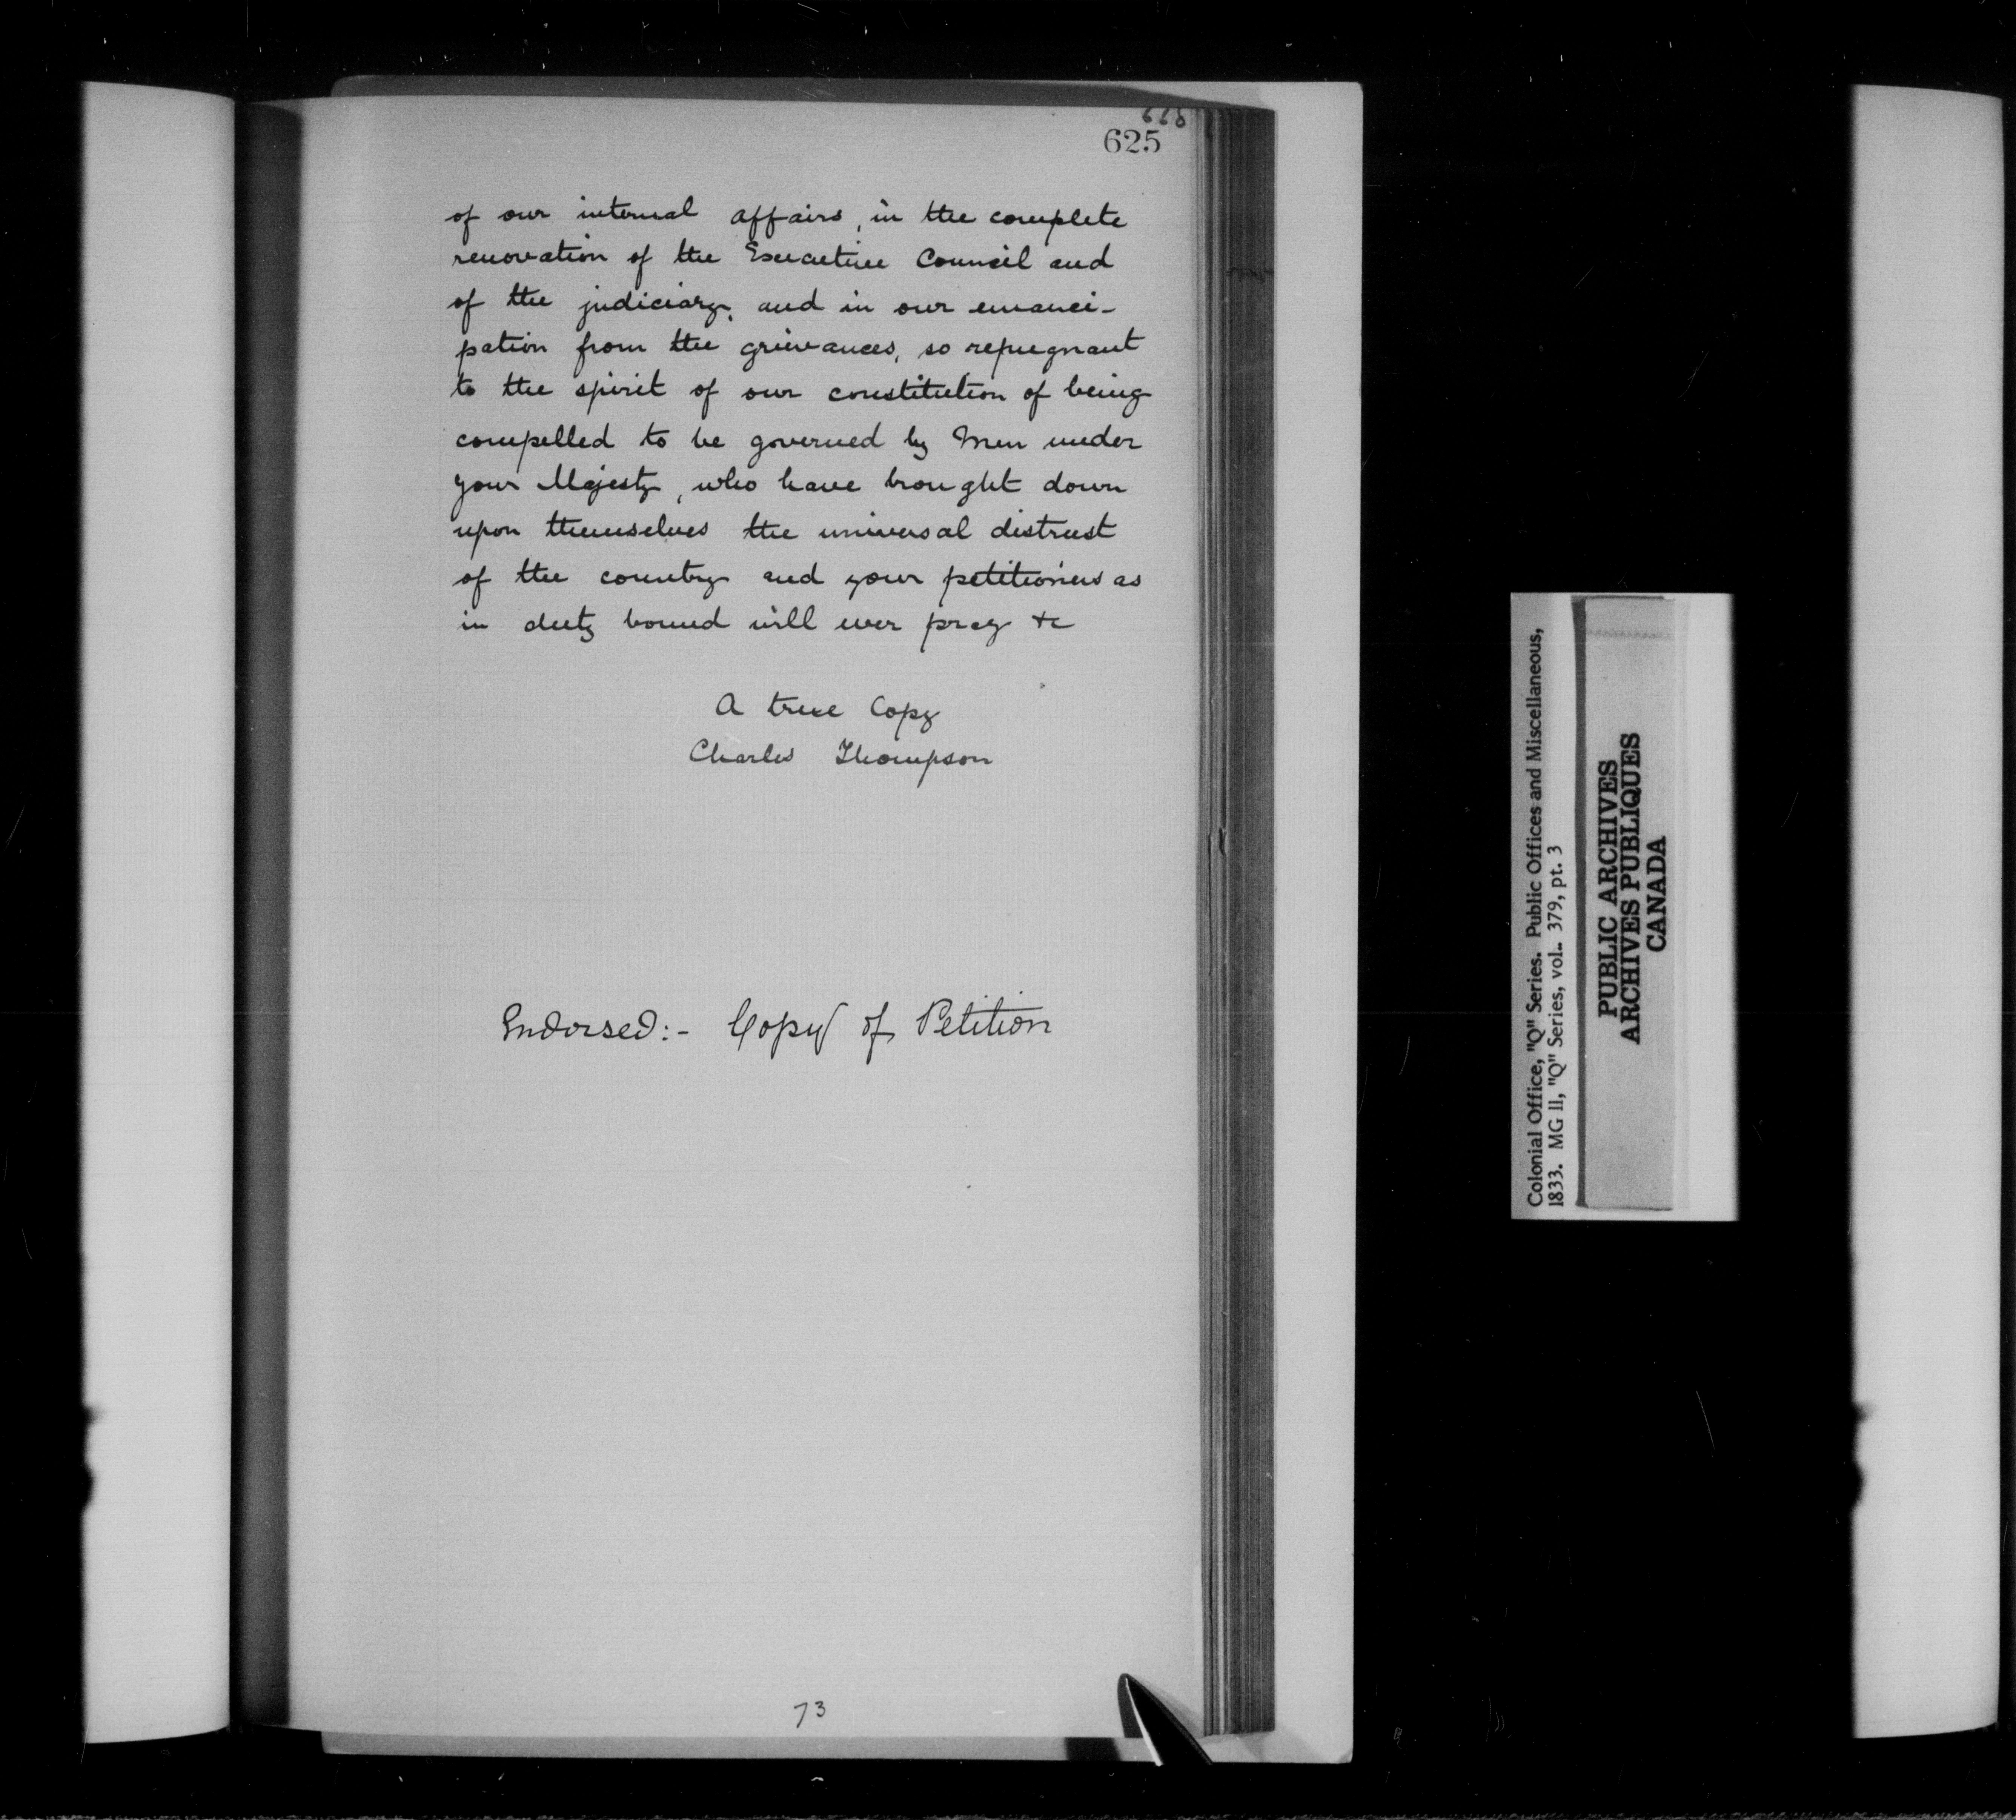 625
of our internal affairs, in the complete
renovation of the Executive Council and
of the judiciary, and in our emanci-
pation from the grievances, so repugnant
to the spirit of our constitution of being
compelled to be governed by Men under
your Majesty, who have brought down
upon themselves the universal distrust
of the country and your petitioners as
in duty bound will ever pray &c
A true Copy
Charles Thompson
Endorsed:- Copy of Petition
73
Colonial Office, "Q" Series. Public Offices and Miscellaneous,
1833. MG 11, "Q" Series, vol. 379, pt. 3
PUBLIC ARCHIVES
ARCHIVES PUBLIQUES
CANADA